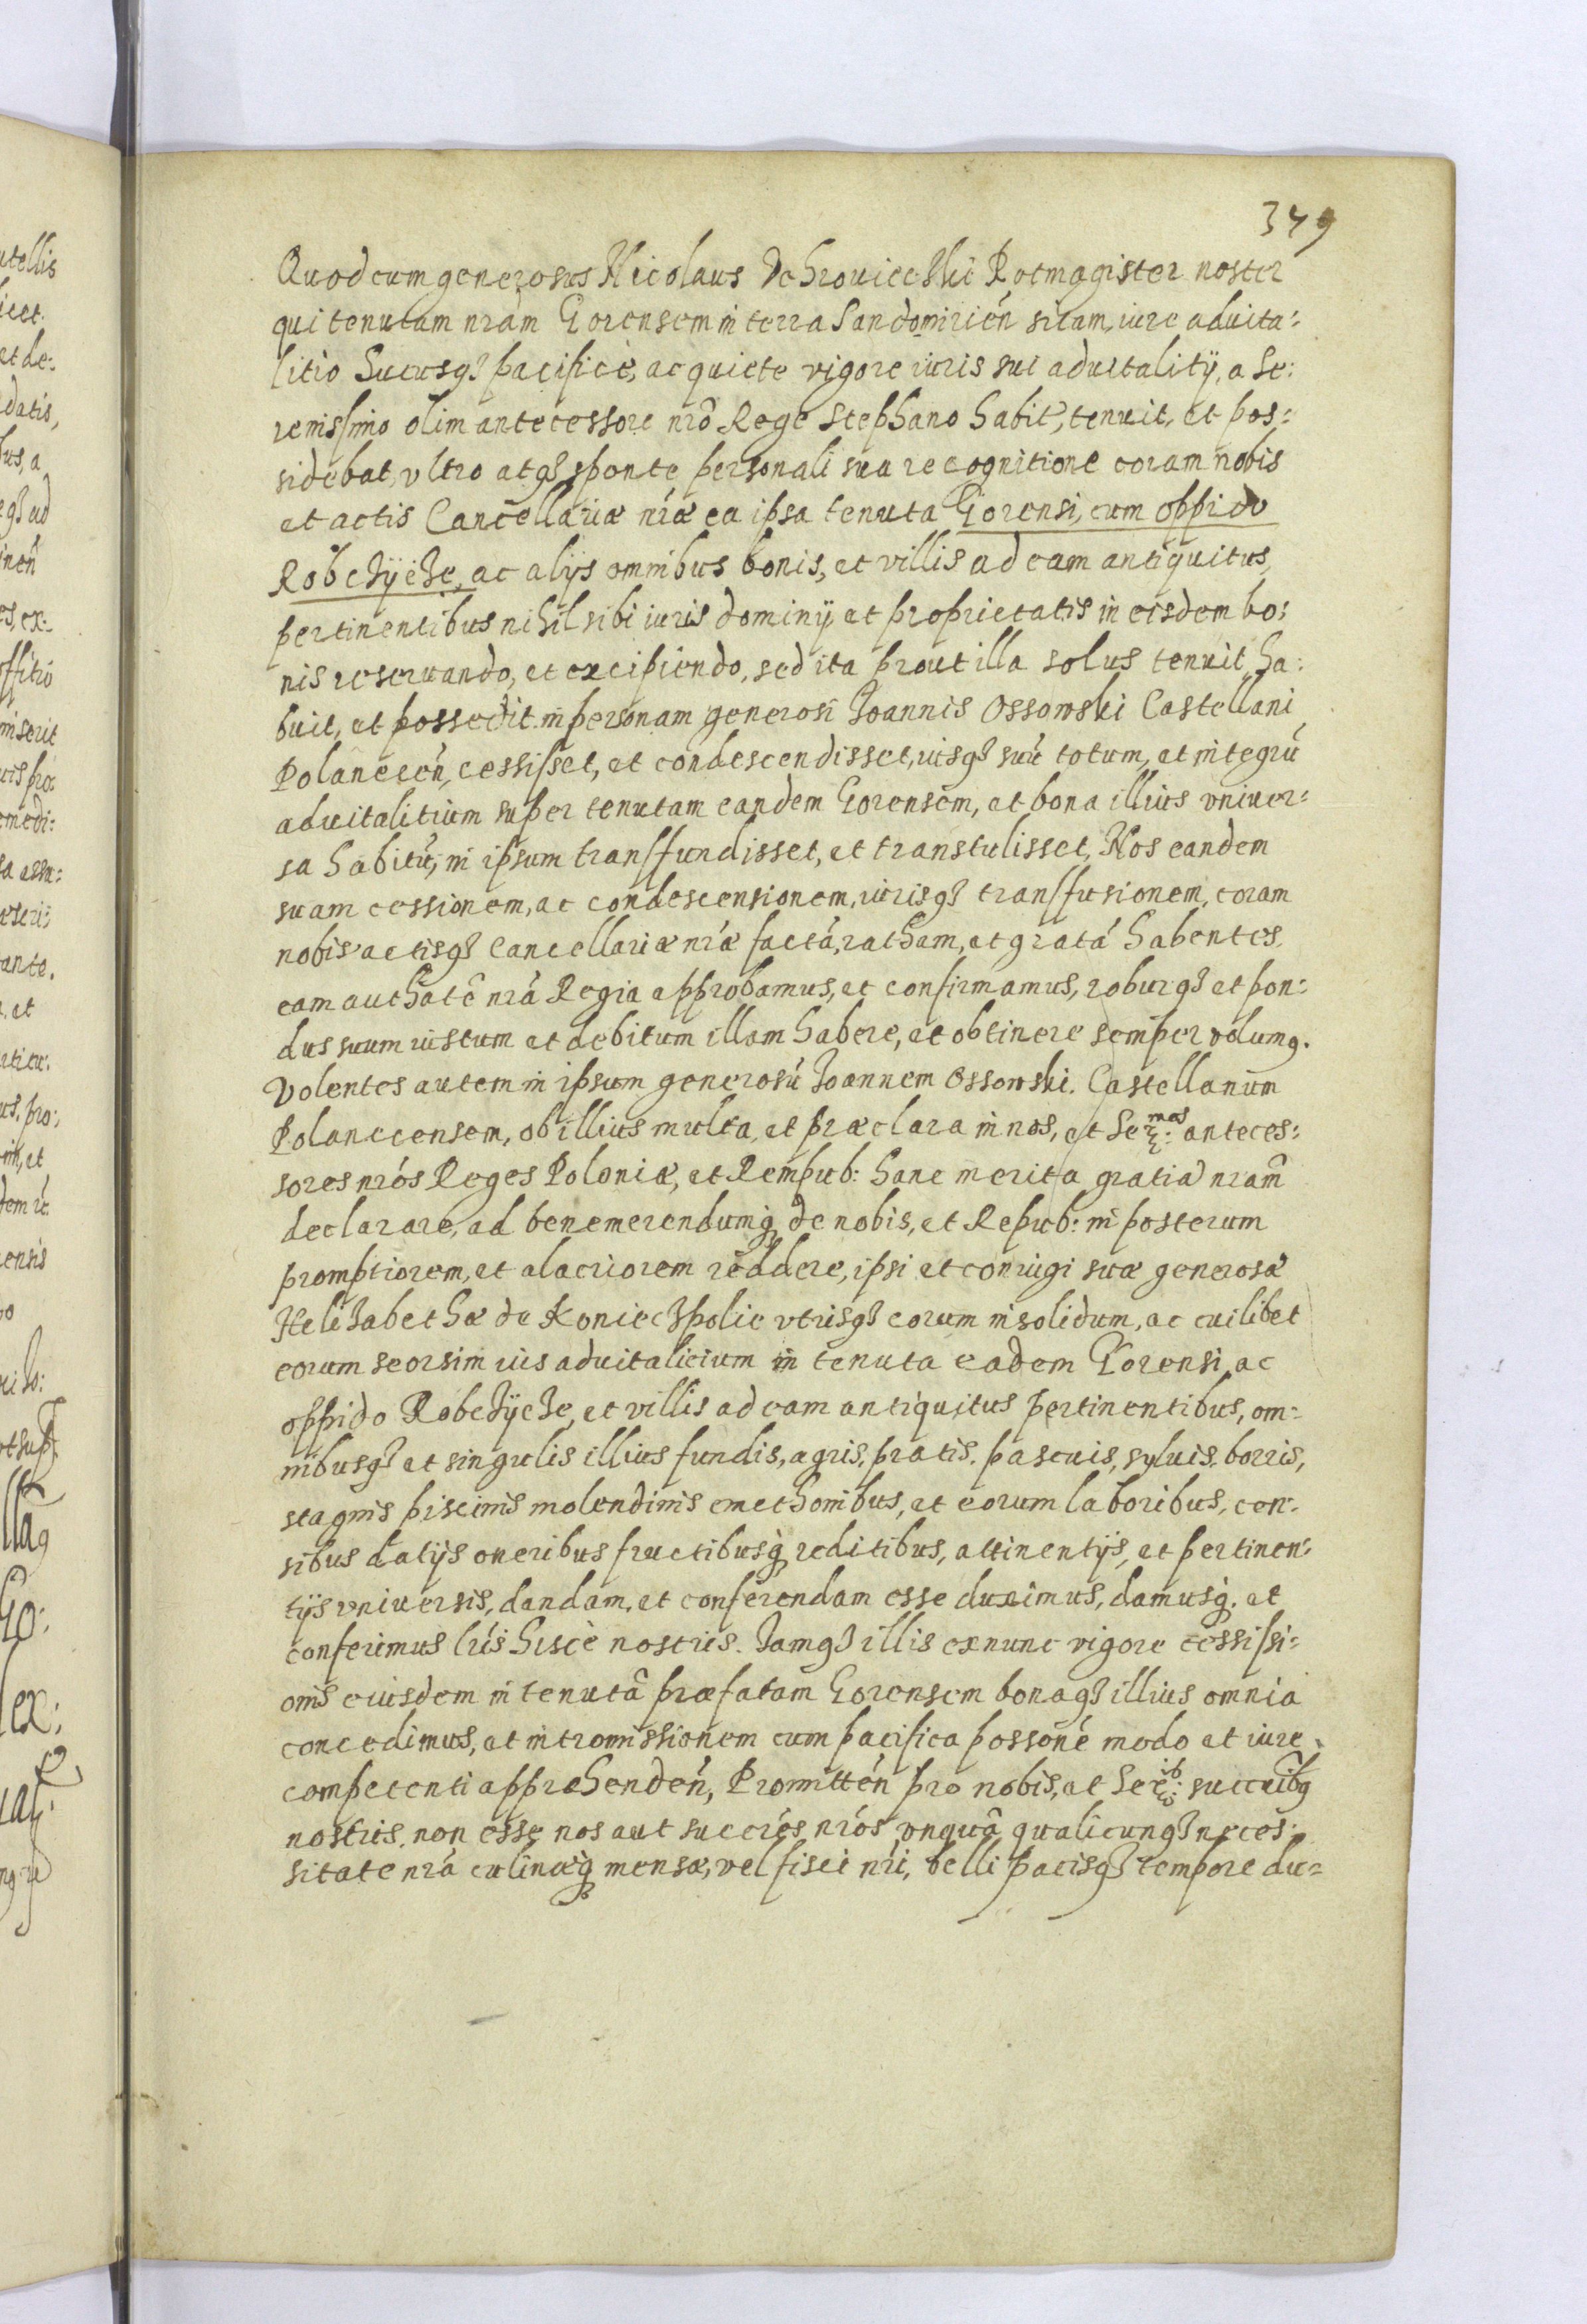 349
Quod cum generosus Nicolaus Vchrouieczki Rotmagister noster
qui tenutam nrãm Gorensem in terra Sandomirień sitam, iure aduita:
litio hucusq3 pacificè, ac quiete vigore iuris sui aduitalitÿ, a Se:
renissimo olim antecessore nrõ Rege Stephano habiť, tenuit, et pos:
sidebat, vltro atq3 sponte personali sua recognitione coram nobis
et actis Cancellariæ nrǽ ea ipsa tenuta Gorensi, cum oppido
Robcżÿcże, ac alÿs omnibus bonis, et villis ad eam antiquitus,
pertinentibus nihil sibi iuris dominÿ et proprietatis in eisdem bo:
nis reseruando, et excipiendo, sed ita prout illa solus tenuit, ha:
buit, et possedit. in personam generosi Joannis Ossowski Castellani
Polaneceń, cessisset, et condescendisset, iusq3 suú totum, et integrú
aduitalitium super tenutam eandem Gorensem, et bona illius vniuer:
sa habitú, in ipsum transfundisset, et transtulisset, Nos eandem
suam cessionem, ac condescensionem, iurisq3 transfusionem, coram
nobis actisq3 Cancellariæ nrǽ factá, ratham, et gratá habentes
eam authatê nrá Regia approbamus, et confirmamus, roburq3 et pon:
dus suum iustum et debitum illam habere, et obtinere semper volumꝰ.
Volentes autem in ipsum generosú Joannem Ossowski. Castellanum
Polanecensem, ob illius multa, et præclara in nos, et Ser:mos anteces:
sores nrós Reges Poloniæ, et Rempub: hanc merita gratiã nram̃
declarare, ad benemerendumq́ de nobis, et Repub: in posterum
promptiorem, et alacriorem reddere, ipsi et coniugi suæ generosæ
Helizabethæ de Koniecżpolie vtrisq3 eorum insolidum, ac cuilibet
eorum seorsim ius aduitalicium in tenuta eadem Gorensi, ac
oppido Robcżycże, et villis ad eam antiquitus pertinentibus, om:
nibusq3 et singulis illius fundis, agris, pratis. pascuis, syluis. borris,
stagnis piscinis molendinis cmethonibus, et eorum laboribus, cen:
sibus datÿs oneribus fructibusq́ reditibus, attinentÿs, et pertinen:
tÿs vniuersis, dandam, et conferendam esse duximus, damusq́. et
conferimus lrís hiscè nostris. Jamq3 illis exnunc vigore cessissi:
onis eiusdem in tenutâ præfatam Gorensem bonaq3 illius omnia
concedimus, et intromissionem cum pacifica possoné modo et iure
competenti apprehendeń, Promitteń pro nobis, et Ser:ib succribꝰ
nostris. non esse nos aut succrés nrós vnquã qualicunq3 neces:
sitate nrá culinæq́ mensæ, vel fisci nrí, belli pacisq3 tempore du: